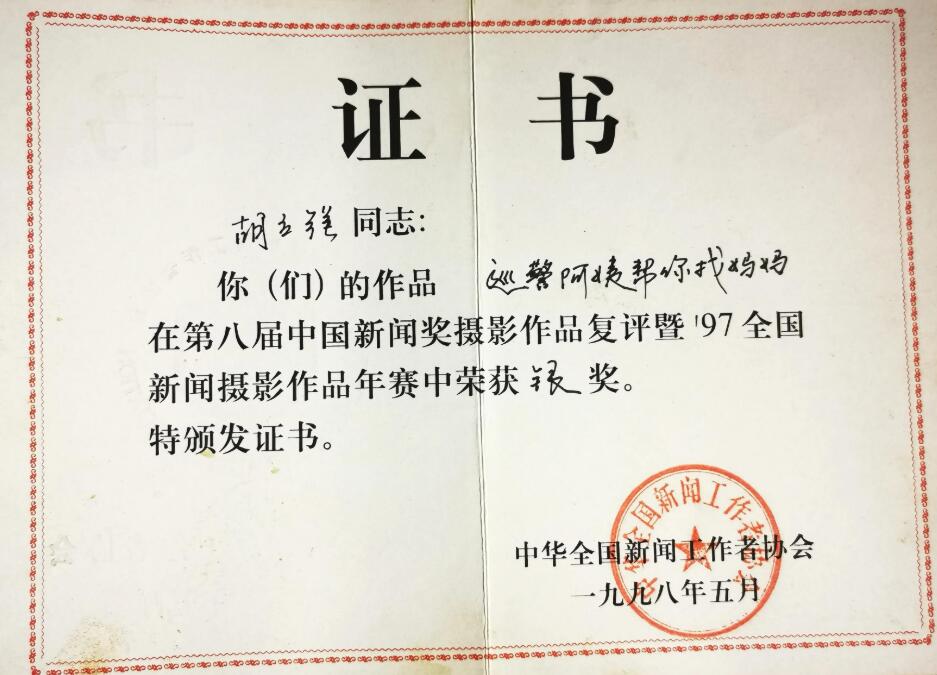 证 书
胡 同志:
你（们）的作品 巡警阿姨帮你找妈妈
在第八届中国新闻奖摄影作品复评暨'97全国
新闻摄影作品年赛中荣获银奖。
特颁发证书。
中华全国新闻工作者协会
中华全国新闻工作者协会
一九九八年五月